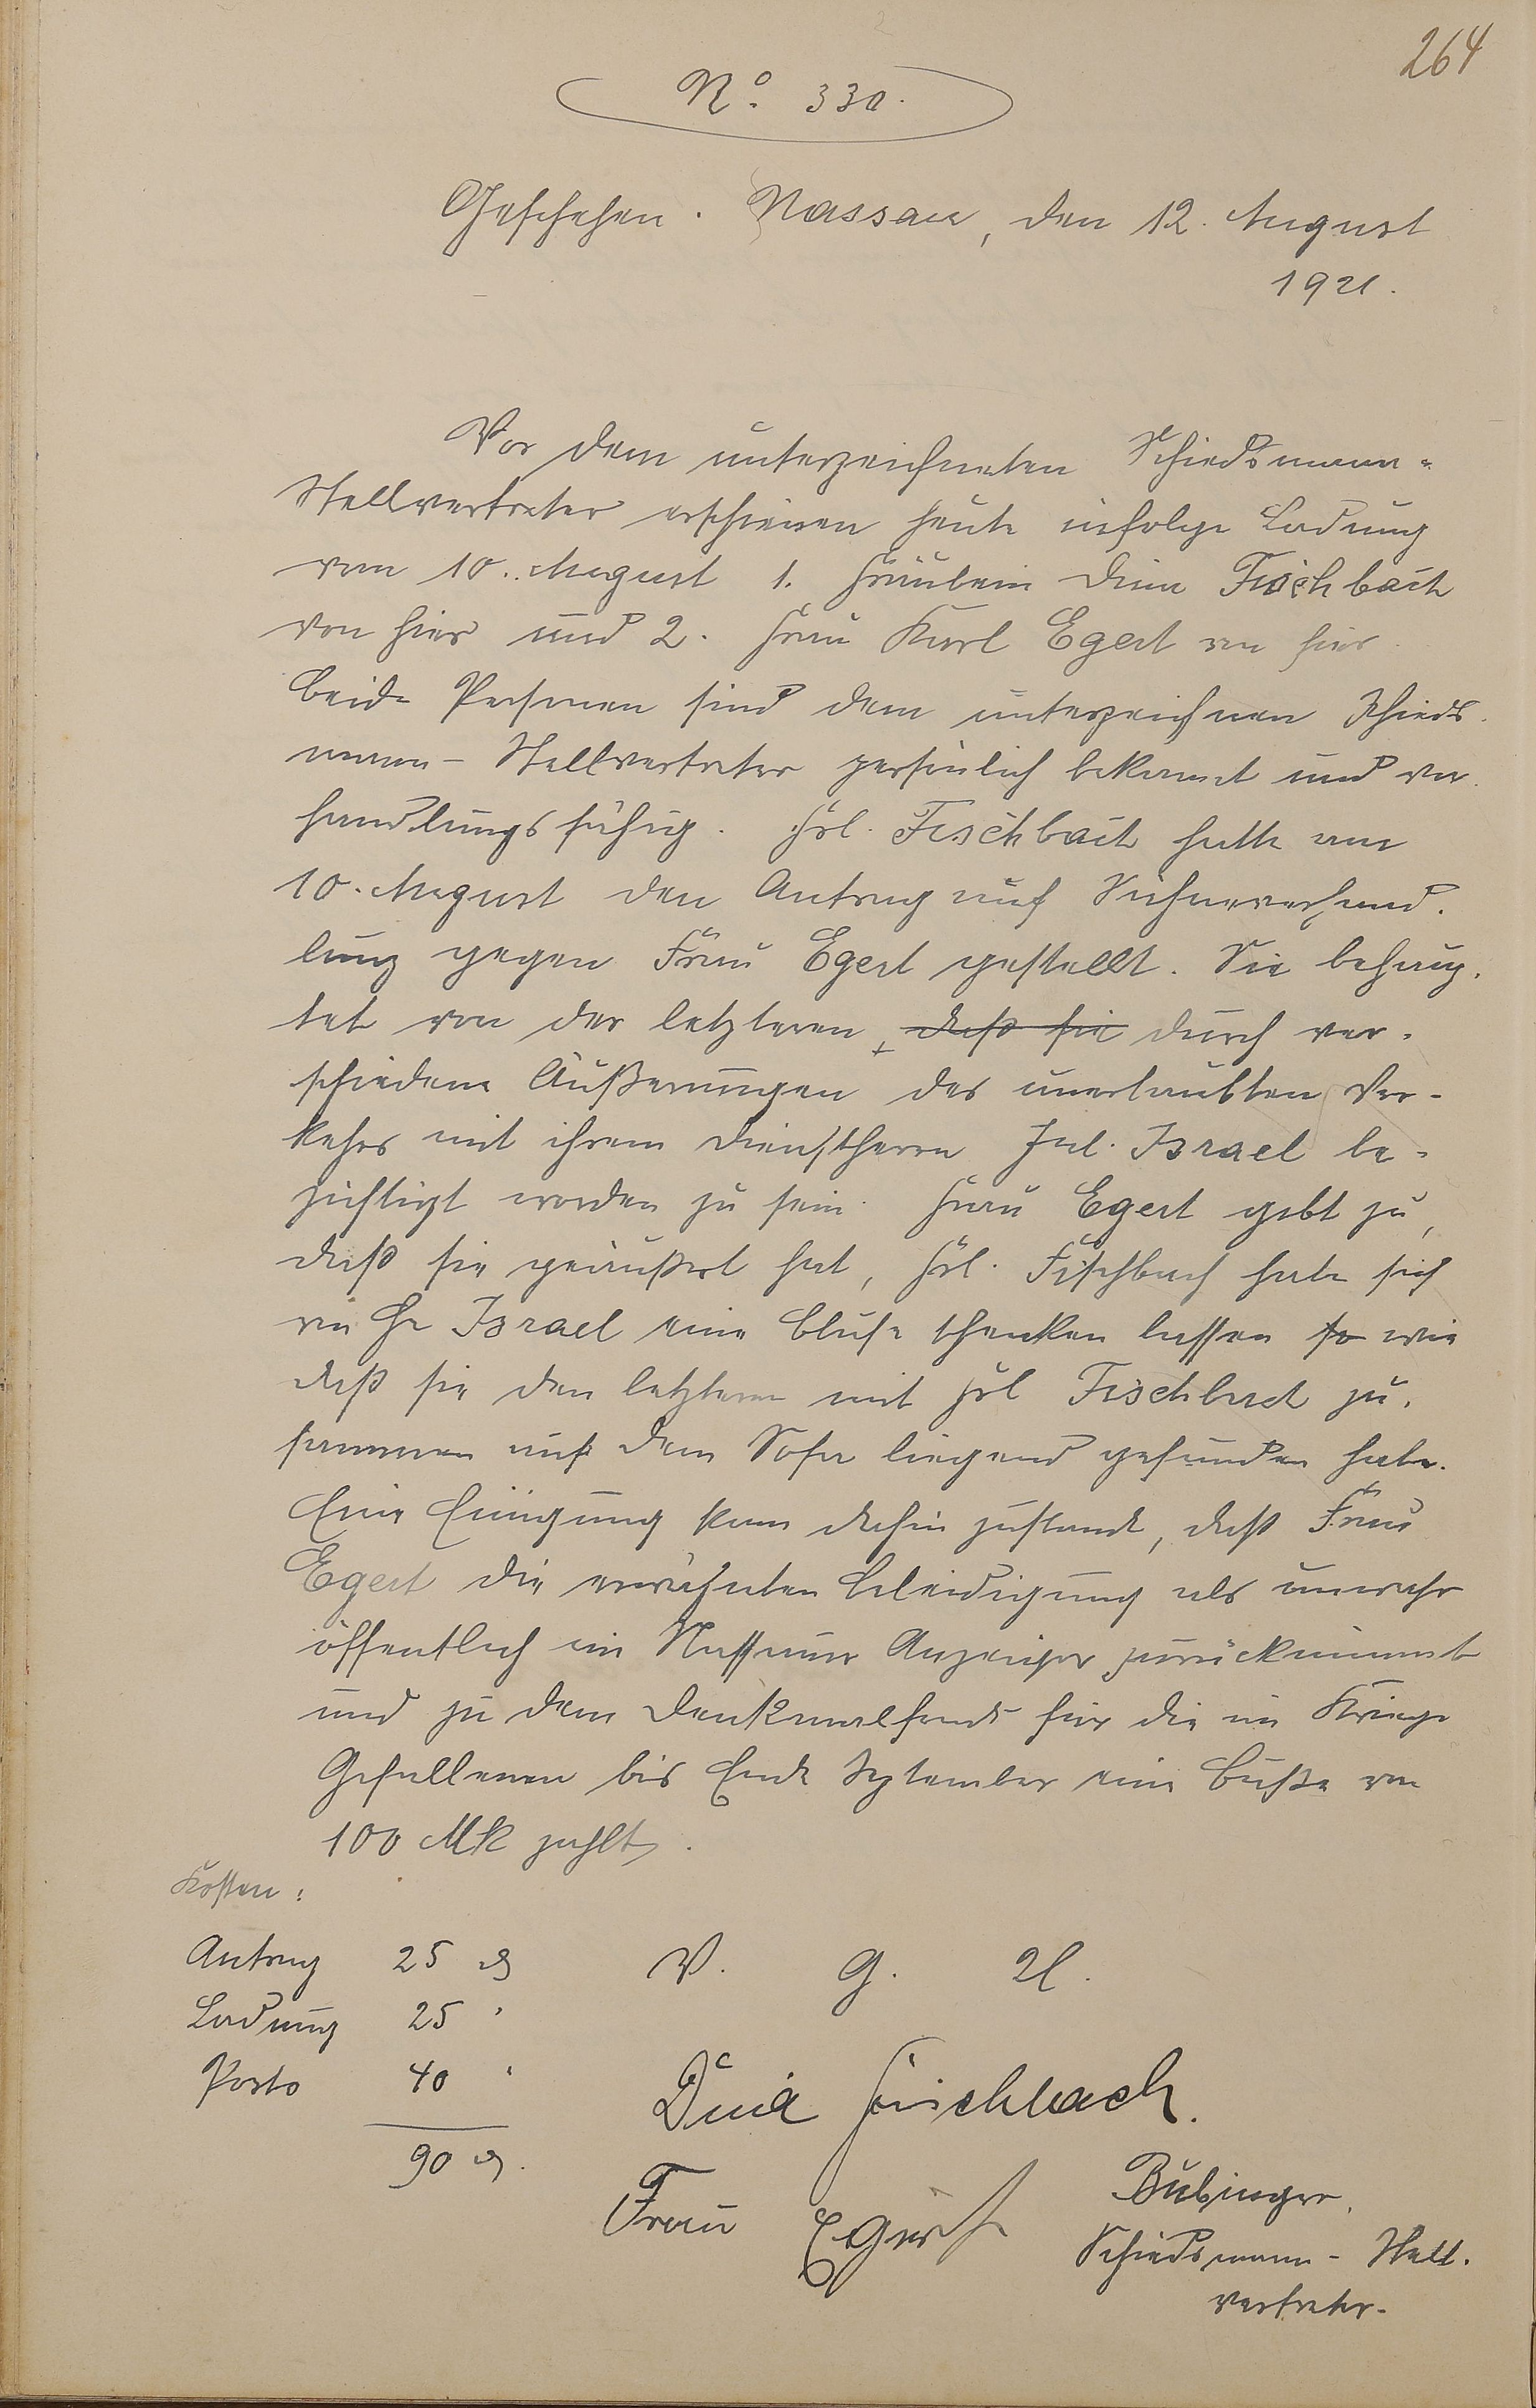 264
No. 330.
Geschehen. Nassau, den 12. August
1921.
Vor dem unterzeichneten Schiedsmann-
Stellvertreter erschienen heute infolge Ladung
vom 10. August 1. Fräulein Dina Fischbach
von hier und 2. Frau Karl Egert von hier.
Beide Personen sind dem unterzeichnen Schieds-
mann-Stellvertreter persönlich bekannt und ver-
handlungsfähig. Frl. Fischbach hatte am
10. August den Antrag auf Sühneverhand-
lung gegen Frau Egert gestellt. Sie behaup-
tet von der letzteren, daß sie durch ver-
schiedene Äußerungen des unerlaubten Ver-
kehrs mit ihrem Dienstherrn Jul. Israel be-
zichtigt worden zu sein. Frau Egert gibt zu,
daß sie geäußert hat, Frl. Fischbach habe sich
von Hr Israel eine Bluse schenken lassen so wie
daß sie den letzteren mit Frl Fischbach zu-
sammen auf dem Sofa liegend gefunden habe.
Eine Einigung kam dahin zustande, daß Frau
Egert die erwähnten Beleidigung als unwahr
öffentlich im Nassauer Anzeiger zurücknimmt
und zu dem Denkmalfonds für die im Kriege
Gefallenen bis Ende September eine Buße von
100 Mk zahlt.
Kosten:
Antrag 25 ₰ V. G. U.
Ladung 25 "
Porto 40 "
Dina Fischbach.
90 ₰.
Frau Egert
Bubinger,
Schiedsmann-Stell-
vertreter.